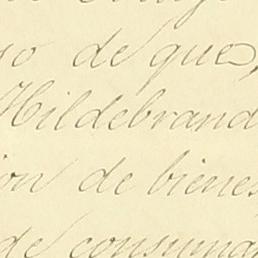 so de que,
Hildebrand
ion de bienes
de consumar